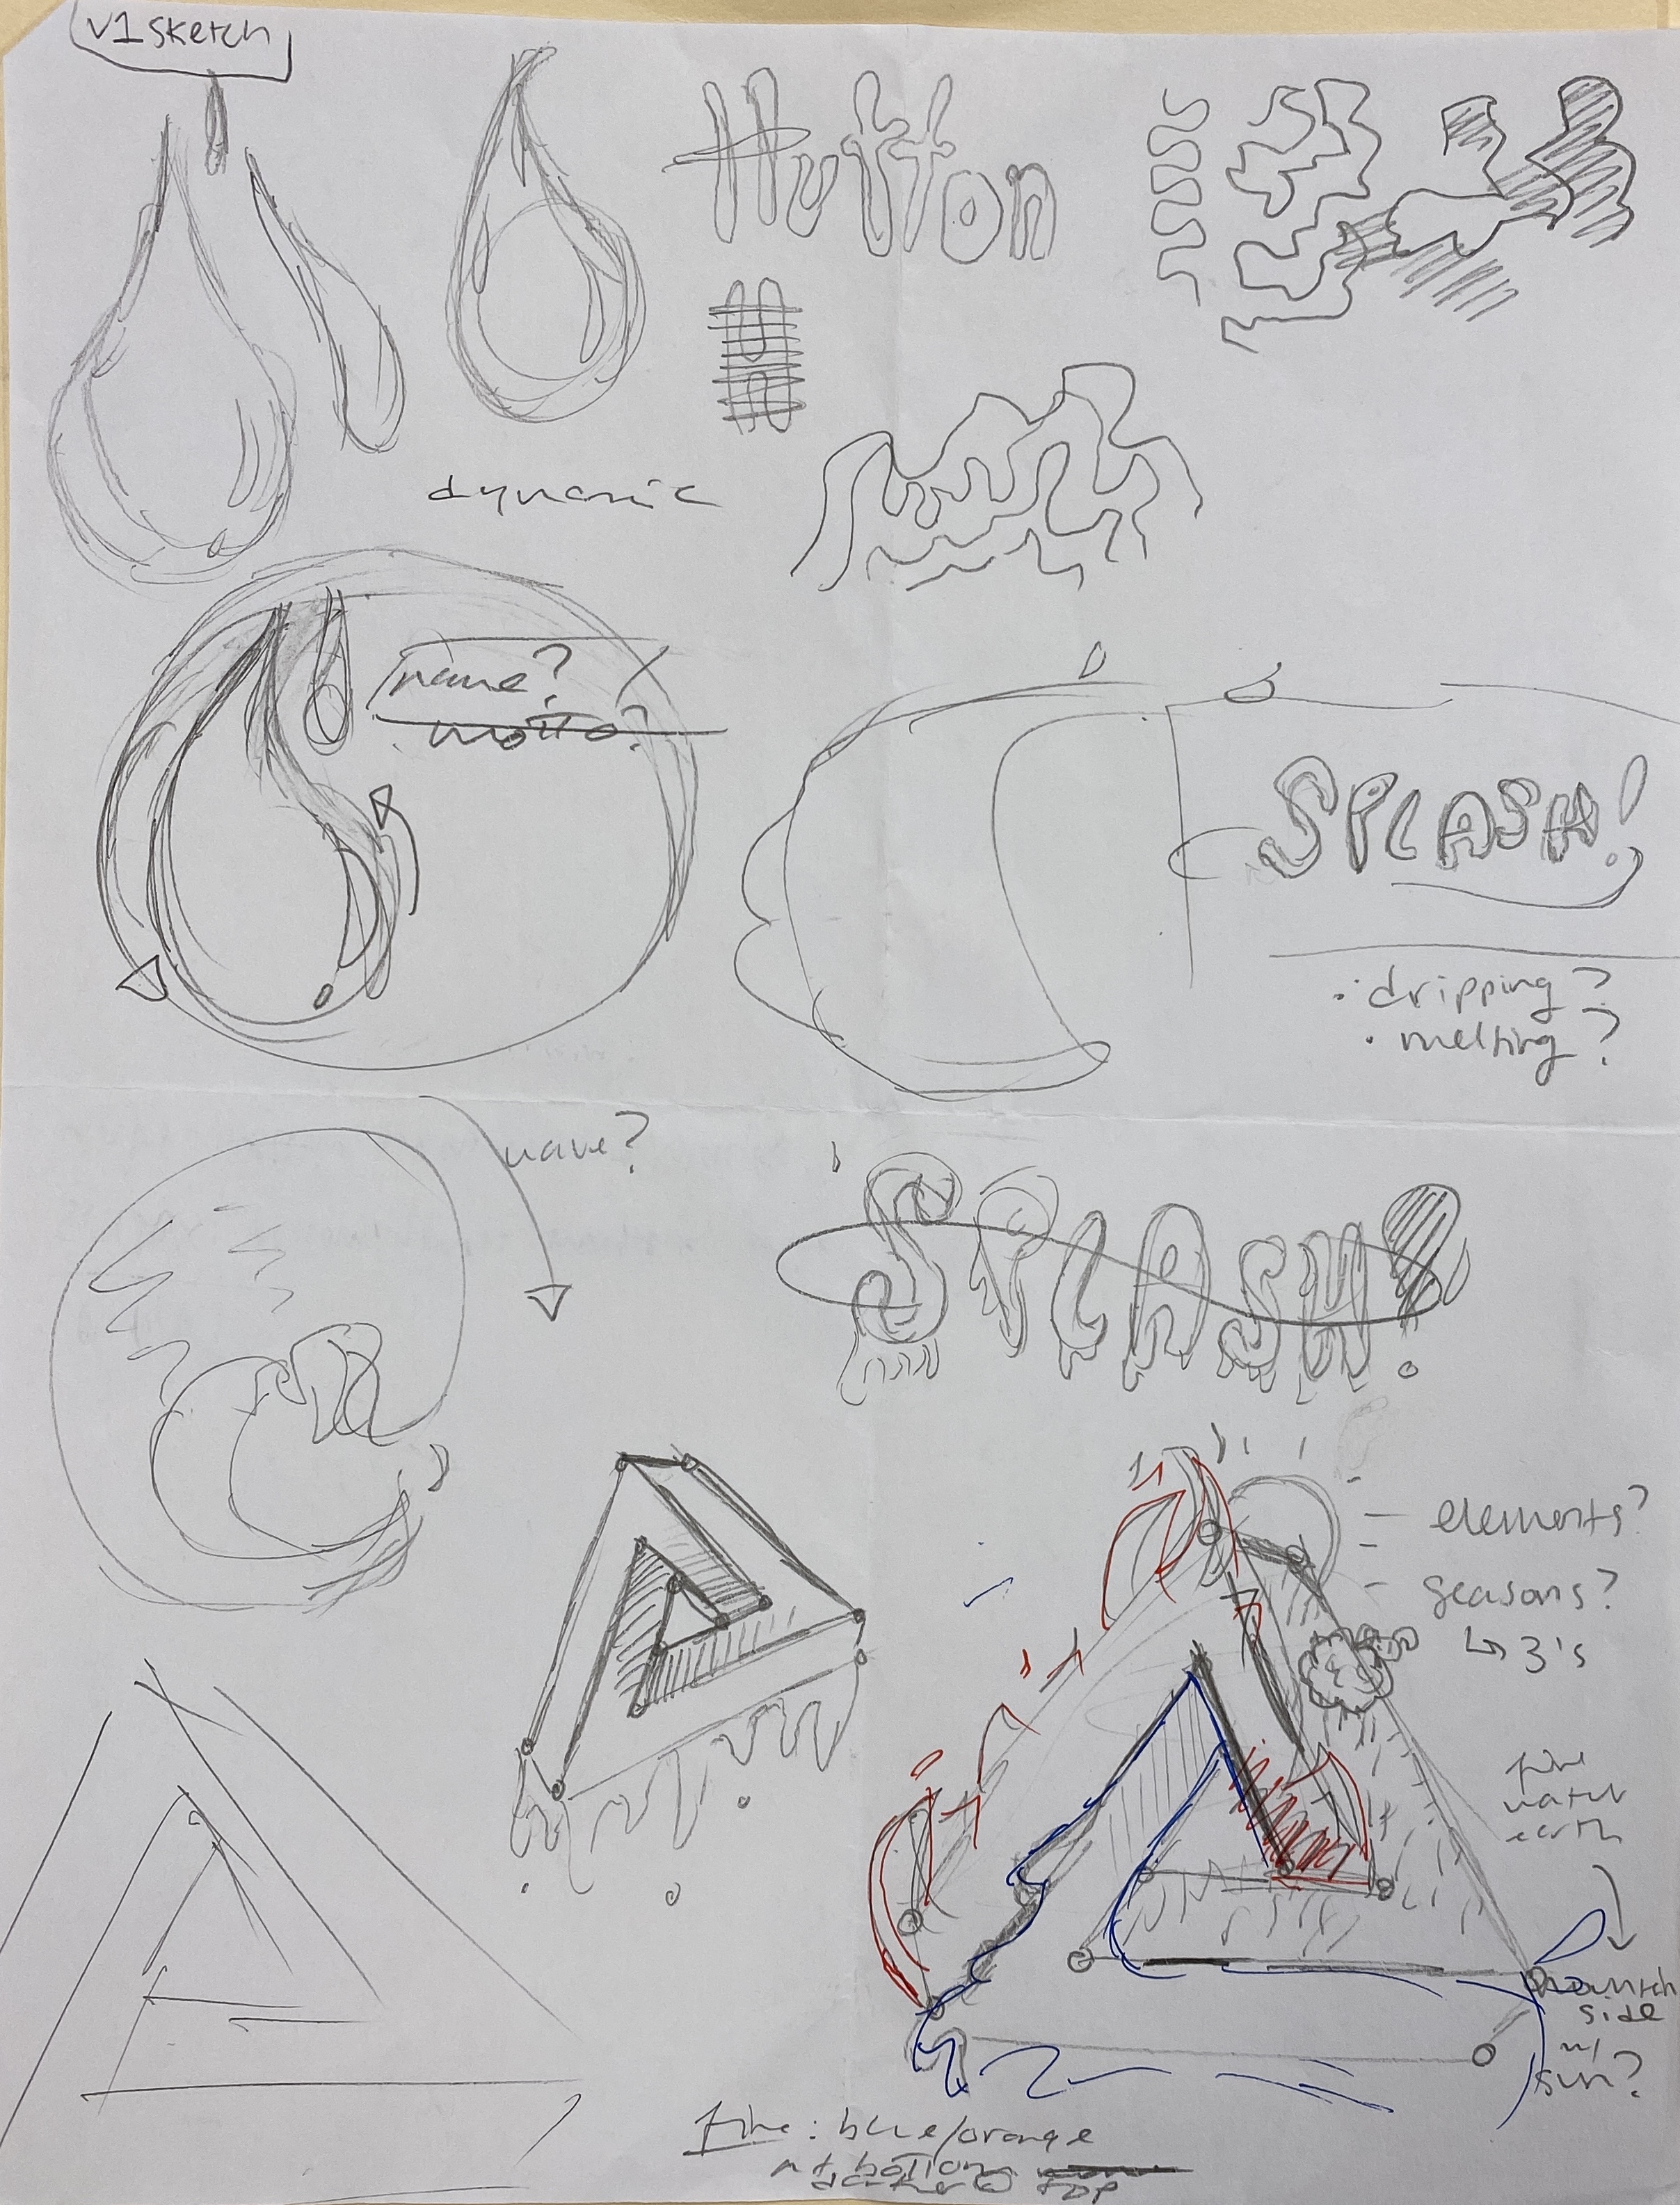 v1 sketch
Hutton
H
dynamic
name?
motto?
SPLASH!
• dripping?
• melting?
wave?
SPLASH!
elements?
seasons?
↳ 3's
fire
water
earth
side
w/
sun?
Fire: blue/orange
at bottom
darker @ top